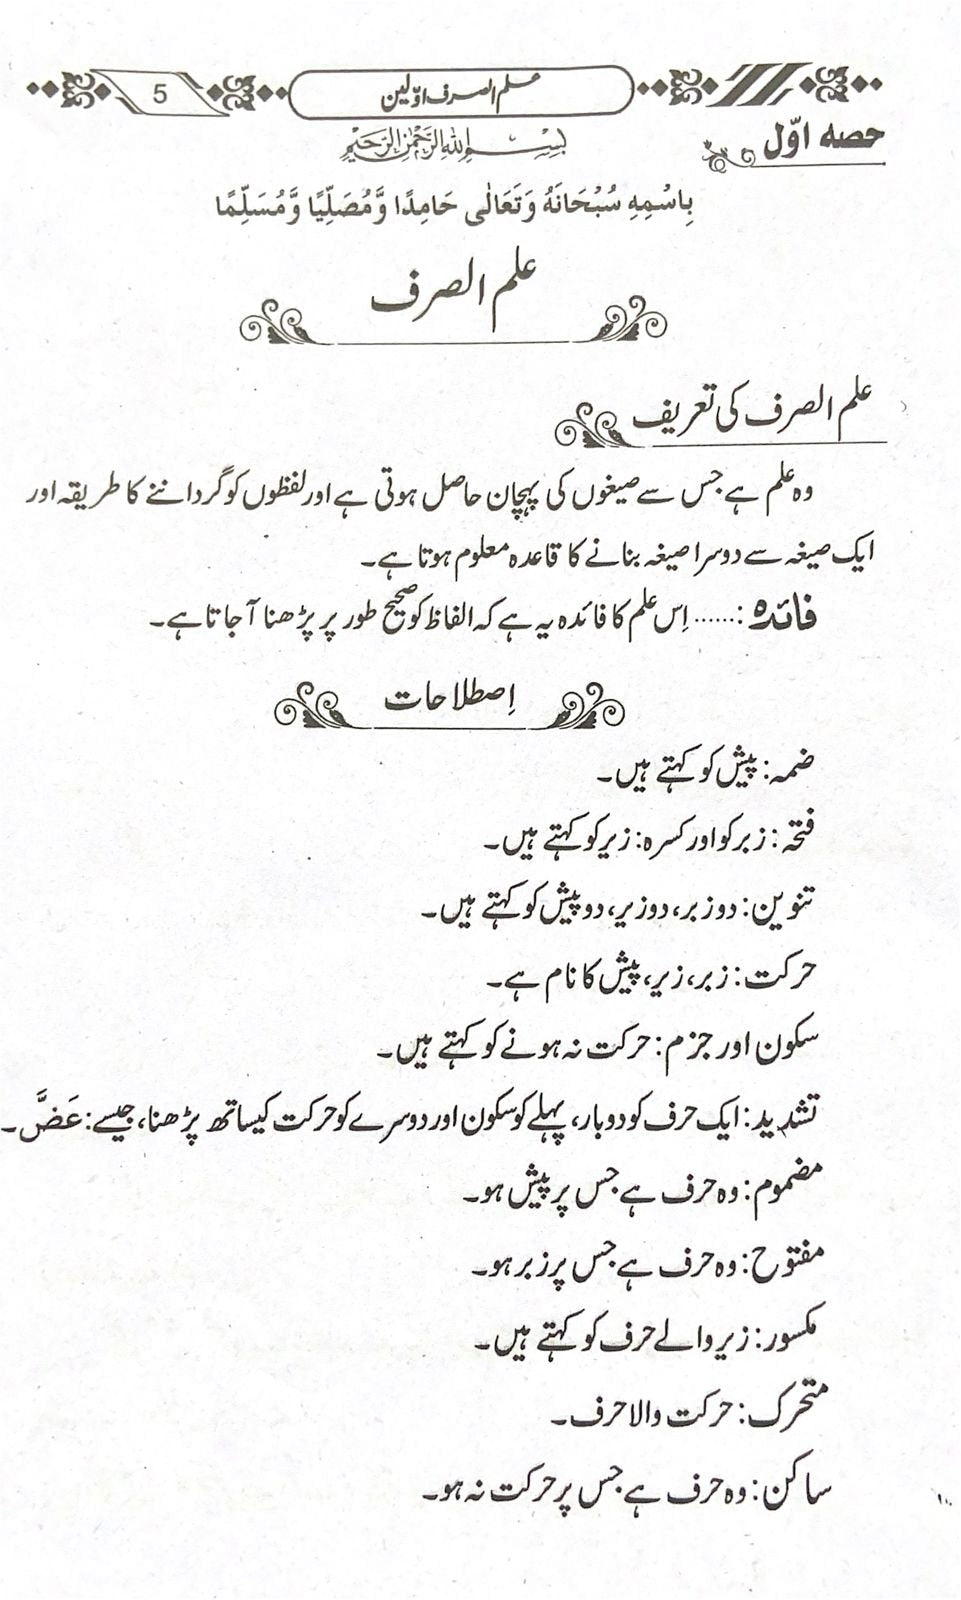 5
علم الصرف اوّلین
حصہ اوّل
بِسْمِ اللهِ الرَّحْمٰنِ الرَّحِيْمِ
بِاسْمِهٖ سُبْحَانَهُ وَتَعَالٰى حَامِدًا وَّمُصَلِّيًا وَّمُسَلِّمًا
علم الصرف
علم الصرف کی تعریف
وہ علم ہے جس سے صیغوں کی پہچان حاصل ہوتی ہے اور لفظوں کو گرداننے کا طریقہ اور
ایک صیغہ سے دوسرا صیغہ بنانے کا قاعدہ معلوم ہوتا ہے۔
فائدہ:...... اِس علم کا فائدہ یہ ہے کہ الفاظ کو صحیح طور پر پڑھنا آ جاتا ہے۔
اِصطلاحات
ضمہ: پیش کو کہتے ہیں۔
فتحہ: زبر کو اور کسرہ: زیر کو کہتے ہیں۔
تنوین: دو زبر، دو زیر، دو پیش کو کہتے ہیں۔
حرکت: زبر، زیر، پیش کا نام ہے۔
سکون اور جزم: حرکت نہ ہونے کو کہتے ہیں۔
تشدید: ایک حرف کو دوبار، پہلے کو سکون اور دوسرے کو حرکت کیساتھ پڑھنا، جیسے: عَضَّ۔
مضموم: وہ حرف ہے جس پر پیش ہو۔
مفتوح: وہ حرف ہے جس پر زبر ہو۔
مکسور: زیر والے حرف کو کہتے ہیں۔
متحرک: حرکت والا حرف۔
ساکن: وہ حرف ہے جس پر حرکت نہ ہو۔